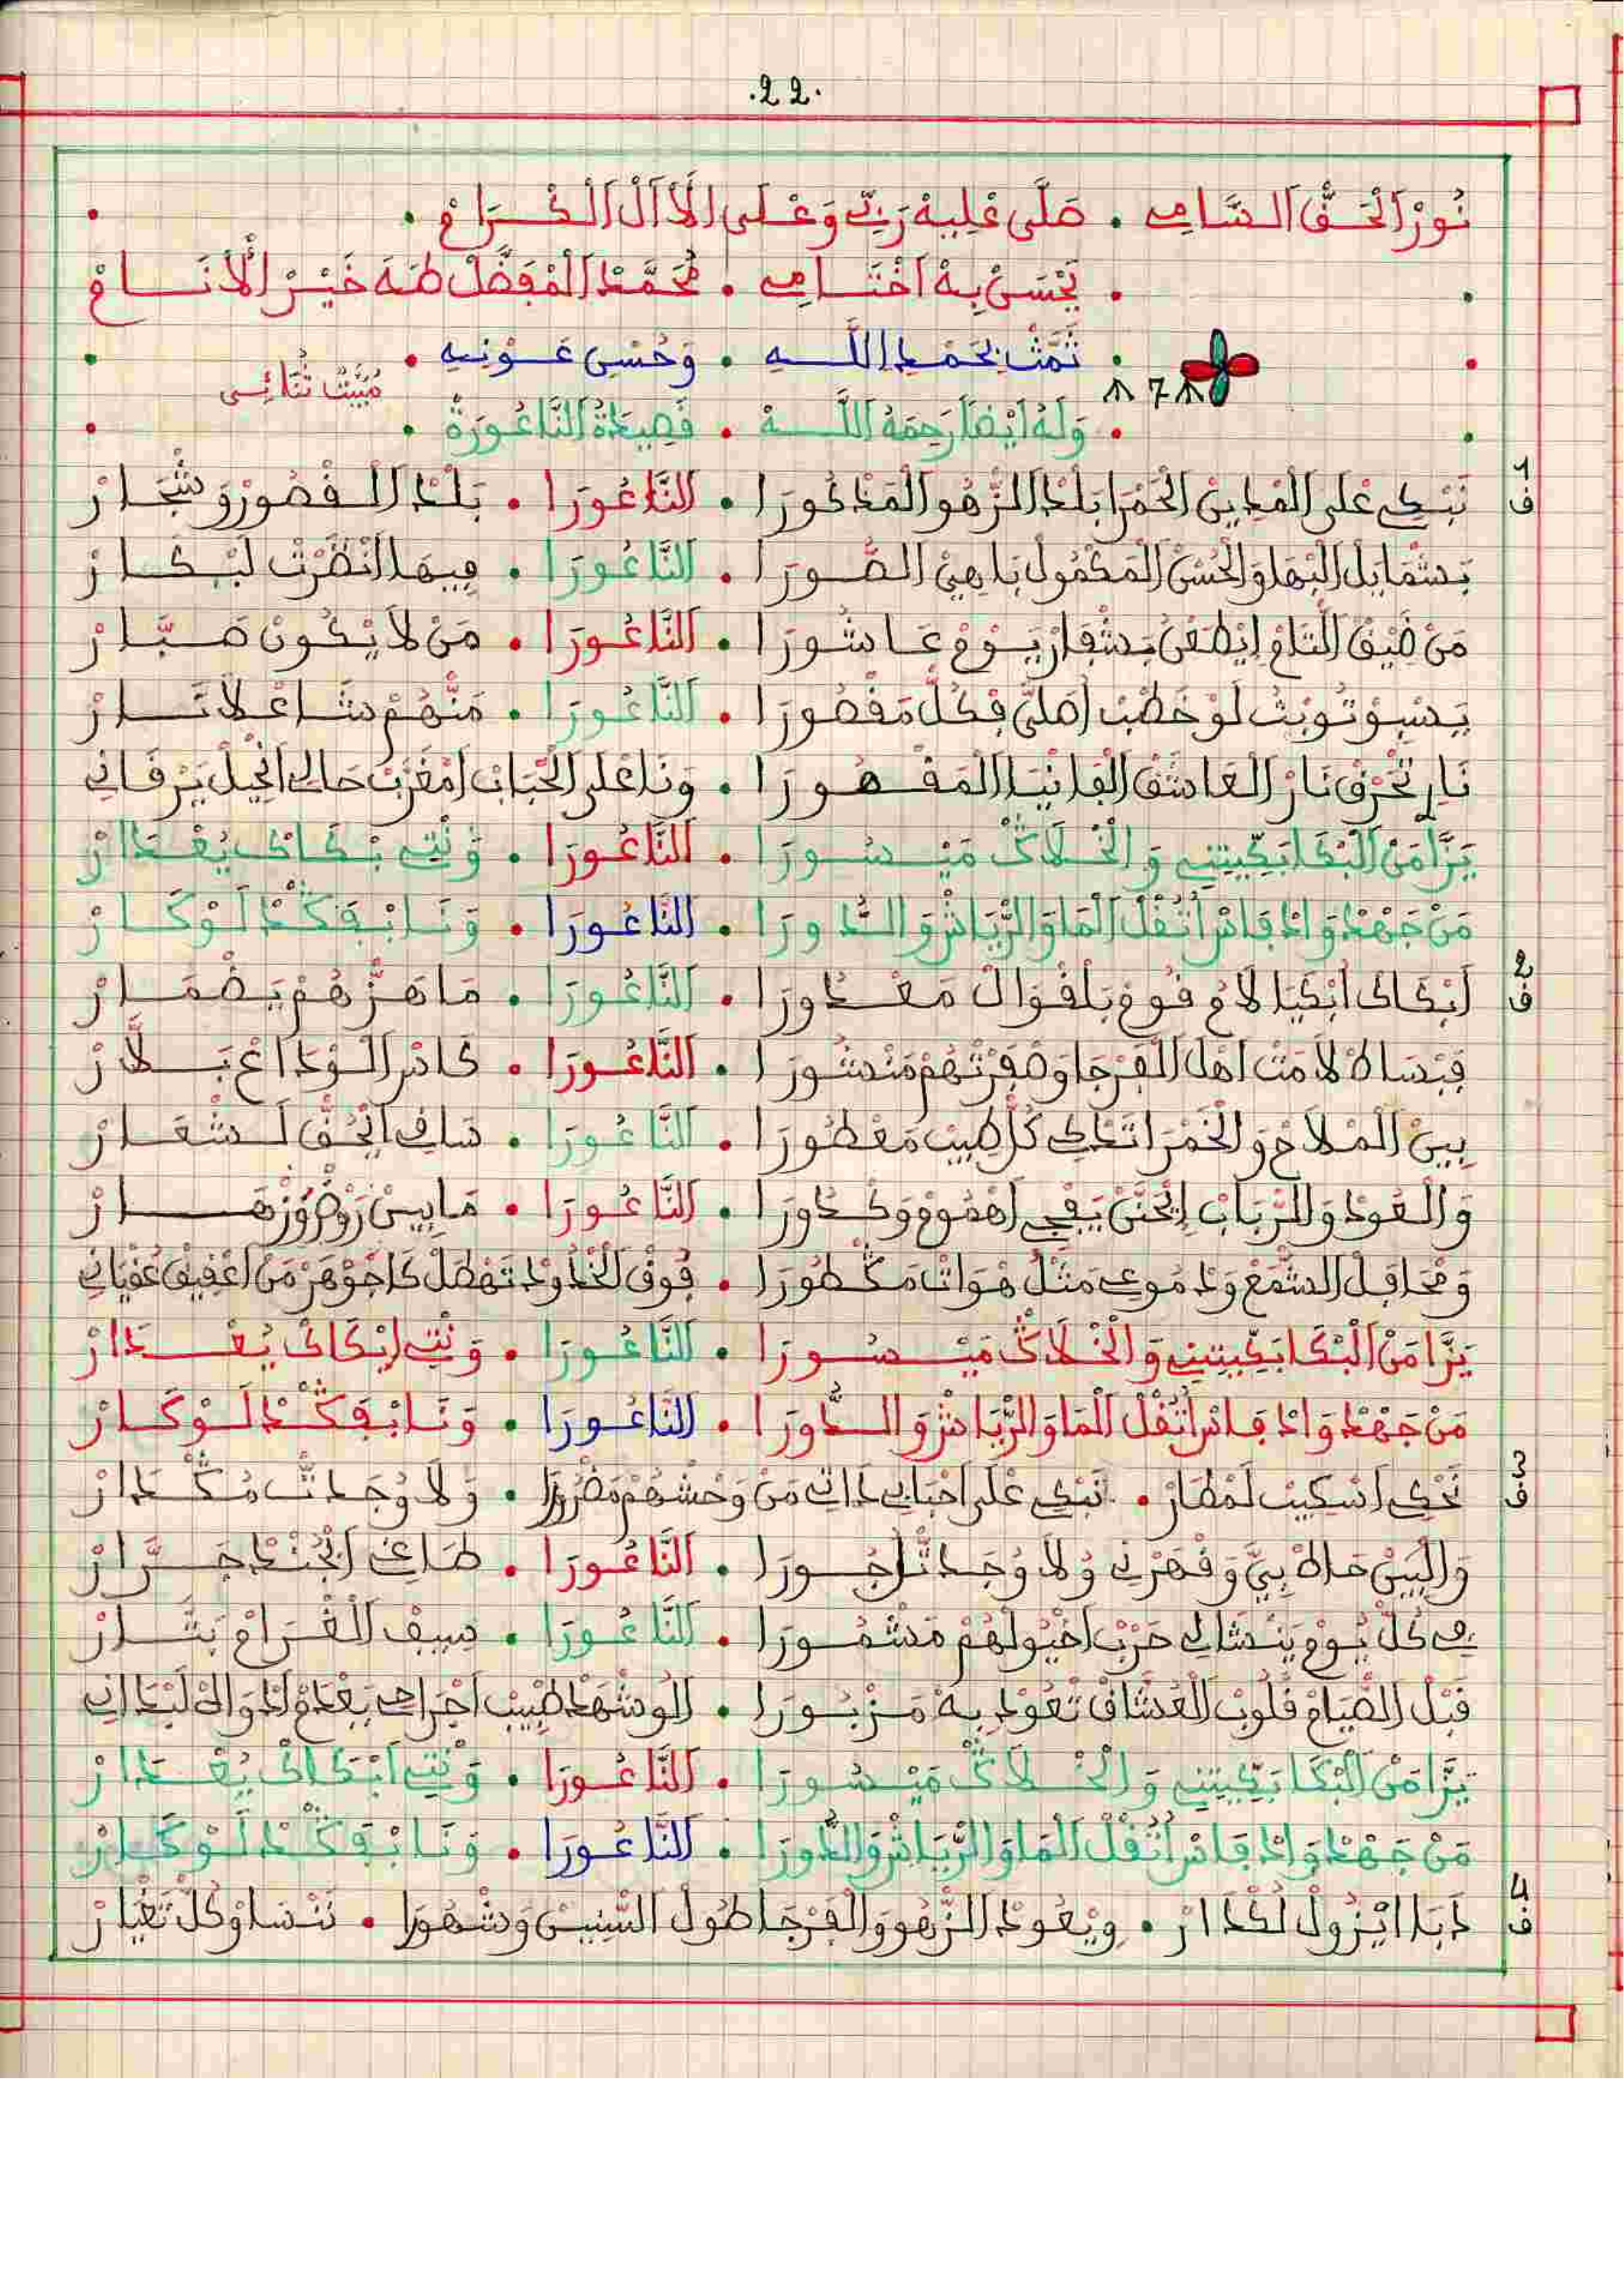 .22.
نُورْ اَلْحَقّْ اَلسَّامِي . صَلَّى عْلِيهْ رَبِّي وَعْلَى اَلْاَلْ اَلْكْرَامْ .
. يَحْسَنْ بِهْ اَخْتَامِي . مُحَمَّدْ اَلْمْفَضَّلْ طَهَ خَيْرْ اَلْأَنَامْ
. تَمَّتْ بِحَمْدِ اللَّهِ . وَحُسْنِ عَوْنِهِ .
مْبَيَّتْ ثُنَائِي
7
. وَلَهُ أَيْضاً رَحِمَهُ اَللَّهْ . قَصِيدَةُ اَلنَّاعُورَةْ .
ف1 نَبْكِي عْلَى اَلْمْدِينْ اَلْحَمْرَا بَلْدْ اَلزّْهُو اَلْمَذْكُورَا . اَلنَّاعُورَا . بَلْدْ اَلْقْصُورْ وَشْجَارْ
بَشْمَايَلْ اَلْبْهَا وَالْحُسْنْ اَلْمَكْمُولْ بَاهِيَ اَلصُّورَا . اَلنَّاعُورَا . فِيهَا اَنْظَرْتْ لَبْكَارْ
مَنْ ضِيقْ اَلتَّامْ اِيْطَعْنْ بَشْفَارْ يَوْمْ عَاشُورَا . اَلنَّاعُورَا . مَنْ لاَ يْكُونْ صَبَّارْ
يَسْبِوْ تُوبْتْ لَوْ خَطْبْ اَصْلَى فْكُلّْ مَقْصُورَا . اَلنَّاعُورَا . مَنّْهُمْ شَاعْلاَ نَارْ
نَارِي تَحْرَقْ نَارْ اَلْعَاشَقْ اَلْفَانْيَا اَلْمَقْهُورَا . وَنَا عْلَى اَلْحْبَابْ اَمْغَرَّبْ حَالِي اَنْحِيلْ يَرْقَانِي
يَزَّا مَنْ اَلْبْكَا بَكِّيتِينِي وَالْخْلاَكْ مَيْسُورَا . اَلنَّاعُورَا . وَنْتِ بْكَاكْ يُعْذَارْ
مَنْ جَهْدْ وَادْ فَاسْ اَتْقَلْ اَلْمَا وَالرّْيَاشْ وَالدُّورَا . اَلنَّاعُورَا . وَنَا بْفَكْدْ لَوْكَارْ
ف2 اَبْكَاكْ اَبْكَيَا لاَمُ قُومْ بَلْقْوَالْ مَعْدُورَا . اَلنَّاعُورَا . مَا هَزّْهُمْ يَضْمَارْ
فَبْسَاطْ لاَمَتْ اَهْلْ اَلْفْرْجَا وَصْفَرْتْهُمْ مَنْشُورَا . اَلنَّاعُورَا . كَاسْ اَلْوْدَاعْ بَلاَّرْ
بِينْ اَلْمْلاَحْ وَالْخَمْرَا تَحْكِي كُلّْ طِيبْ مَعْطُورَا . اَلنَّاعُورَا . سَاقِي اَيْحُقّْ لَشْعَارْ
وَالْعُودْ وَالرّْبَابْ اِيْحَنَّنْ يَفْجِي اَهْمُومْ وَكْدُورَا . اَلنَّاعُورَا . مَابِينْ رَوْضْ وَزْهَارْ
وَمْحَافَلْ اَلشّْمَعْ وَدْمُوعِي مَثْلْ هْوَاتْنْ مَكْطُورَا . فُوقْ اَلْخْدُودْ تَهْطَلْ كَاجَوْهَرْ مَنْ اَعْقِيقْ عُقْيَانِي
يَزَّا مَنْ اَلْبْكَا بَكِّيتِينِي وَالْخْلاَكْ مَيْسُورَا . اَلنَّاعُورَا . وَنْتِ اِبْكَاكْ يُعْذَارْ
مَنْ جَهْدْ وَادْ فَاسْ اَتْقَلْ اَلْمَا وَالرّْيَاشْ وَالدُّورَا . اَلنَّاعُورَا . وَنَا بْفَكْدْ لَوْكَارْ
ف3 نَحْكِي اَسْكِيبْ لَمْطَارْ . نَبْكِي عْلَى اَحْبَابِي ذَاتِي مَنْ وَحْشْهُمْ مَضْرُورَا . وَلاَ وُجَدْتْ مُكْدَارْ
وَالْبِينْ حَاطْ بِيَّ وَقْهَرْنِي وُلاَ وُجَدْتْ اَجُورَا . اَلنَّاعُورَا . طَاغِي اَبْجُنْدْ جَرَّارْ
فِي كُلّْ يُومْ يَنْشَالِي حَرْبْ اَخْيُولْهُمْ مَشْمُورَا . اَلنَّاعُورَا . سِيفْ اَلْغْرَامْ بَتَّارْ
قَبْلْ اَلصّْيَامْ قْلُوبْ اَلْعُشَّاقْ تْعُودْ بِهْ مَزْبُورَا . اَلُو شْهَدْ طْبِيبْ اَجْرَاحِي بَعْدَمْ اَدْوَالِي لَبْدَانِي
يَزَّا مَنْ اَلْبْكَا بَكِّيتِينِي وَالْخْلاَكْ مَيْسُورَا . اَلنَّاعُورَا . وَنْتِ اَبْكَاكْ يُعْذَارْ
مَنْ جَهْدْ وَادْ فَاسْ اَتْقَلْ اَلْمَا وَالرّْيَاشْ وَالدُّورَا . اَلنَّاعُورَا . وَنَا بْفَكْدْ لَوْكَارْ
ف4 دَبَا اَيْزُولْ لَكْدَارْ . وِيْعُودْ اَلزّْهُو وَالْفْرْجَا طُولْ اَلسّْنِينْ وَشْهُورَا . نَنْسَاوْ كُلّْ تَغْيَارْ